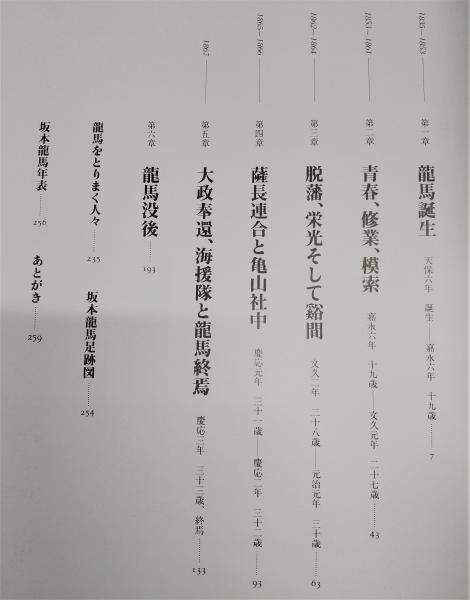 1835〜1853 第一章 龍馬誕生 天保六年 誕生――嘉永六年 十九歳………7
1853〜1861 第二章 青春、修業、模索 嘉永六年 十九歳――文久元年 二十七歳………43
1862〜1864 第三章 脱藩、栄光そして谿間 文久二年 二十八歳――元治元年 三十歳………63
1865〜1866 第四章 薩長連合と亀山社中 慶応元年 三十一歳――慶応二年 三十二歳………93
1867 第五章 大政奉還、海援隊と龍馬終焉 慶応三年 三十三歳、終焉………133
第六章 龍馬没後………193
龍馬をとりまく人々………235
坂本龍馬足跡図………254
坂本龍馬年表………256
あとがき………259